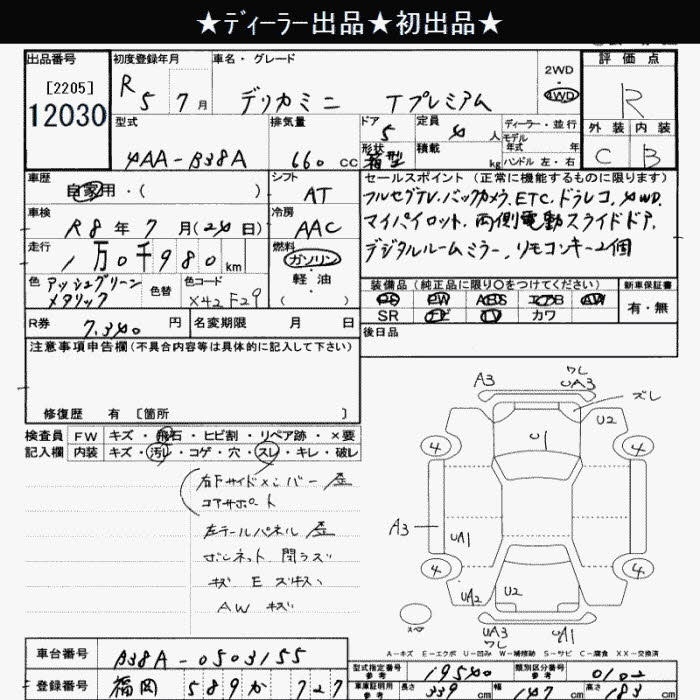 ★ディーラー出品★初出品★
出品番号
[2205]
12030
初度登録年月
R 5 7月
車名・グレード
デリカミニ Tプレミアム
2WD
・
4WD
評価点
R
外装 内装
C B
型式
4AA-B38A
排気量
660 CC
ドア
5
形状
箱型
定員
4 人
積載
kg
ディーラー・並行
モデル年式 年
ハンドル 左・右
車歴
自家用・( )
シフト
AT
車検
R8年7月(24日)
冷房
AAC
走行
1万0千980km
燃料
ガソリン
・
軽油
( )
色
アッシュグリーンメタリック
色替
色コード
X42 F29
セールスポイント (正常に機能するものに限ります)
フルセグTV、バックカメラ、ETC、ドラレコ、4WD、
マイパイロット、両側電動スライドドア、
デジタルルームミラー、リモコンキー2個
装備品 (純正品に限り○をつけてください)
PS PW ABS エアB AW
SR ナビ TV カワ
新車保証書
有・無
R券 7,340円
名変期限 月 日
後日品
注意事項申告欄(不具合内容等は具体的に記入して下さい)
修復歴 有 [箇所 ]
検査員
記入欄
FW キズ・飛石・ヒビ割・リペア跡・×要
内装 キズ・汚レ・コゲ・穴・スレ・キレ・破レ
右Fサイドメンバー 歪
コアサポート
左テールパネル 歪
ボンネット 閉ラズ
キズ E ズキズ
AW キズ
A3
ワレ
UA3
ズレ
U2
U1
4
4
A3
UA1
4
4
UA2
U2
UA3
ワレ
UA1
スペア
A-キズ E-エクボ U-凹み W-補修跡 S-サビ C-腐食 XX-交換済
車台番号
B38A-0503155
登録番号
福岡 589 か 727
型式指定番号
参考
19540
類別区分番号
参考
0102
車庫証明用
参考
長さ
339 cm
幅
147 cm
高さ
183 cm